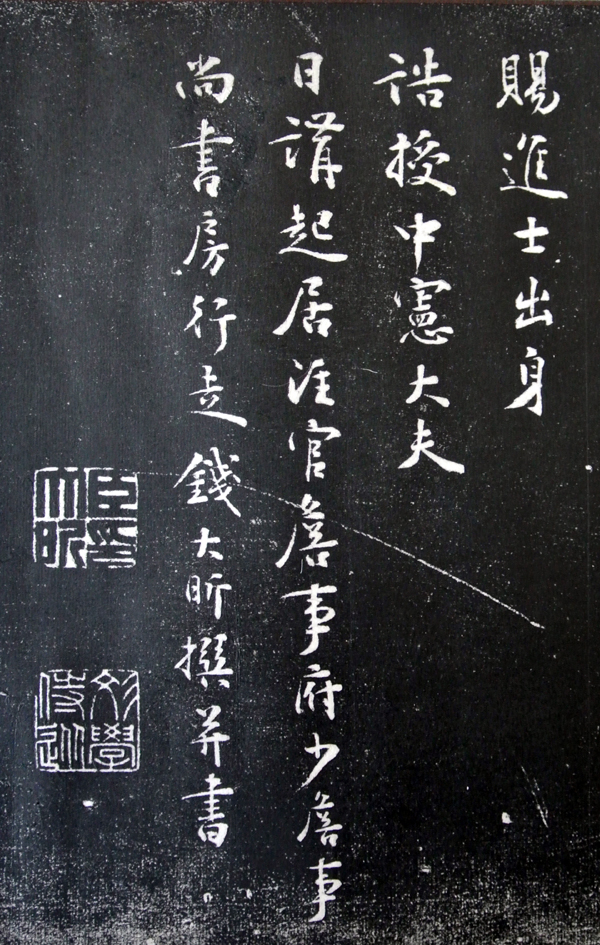 賜進士出身
誥授中憲大夫
日講起居注官詹事府少詹事
尚書房行走錢大昕撰并書
臣大昕印
文學侍從